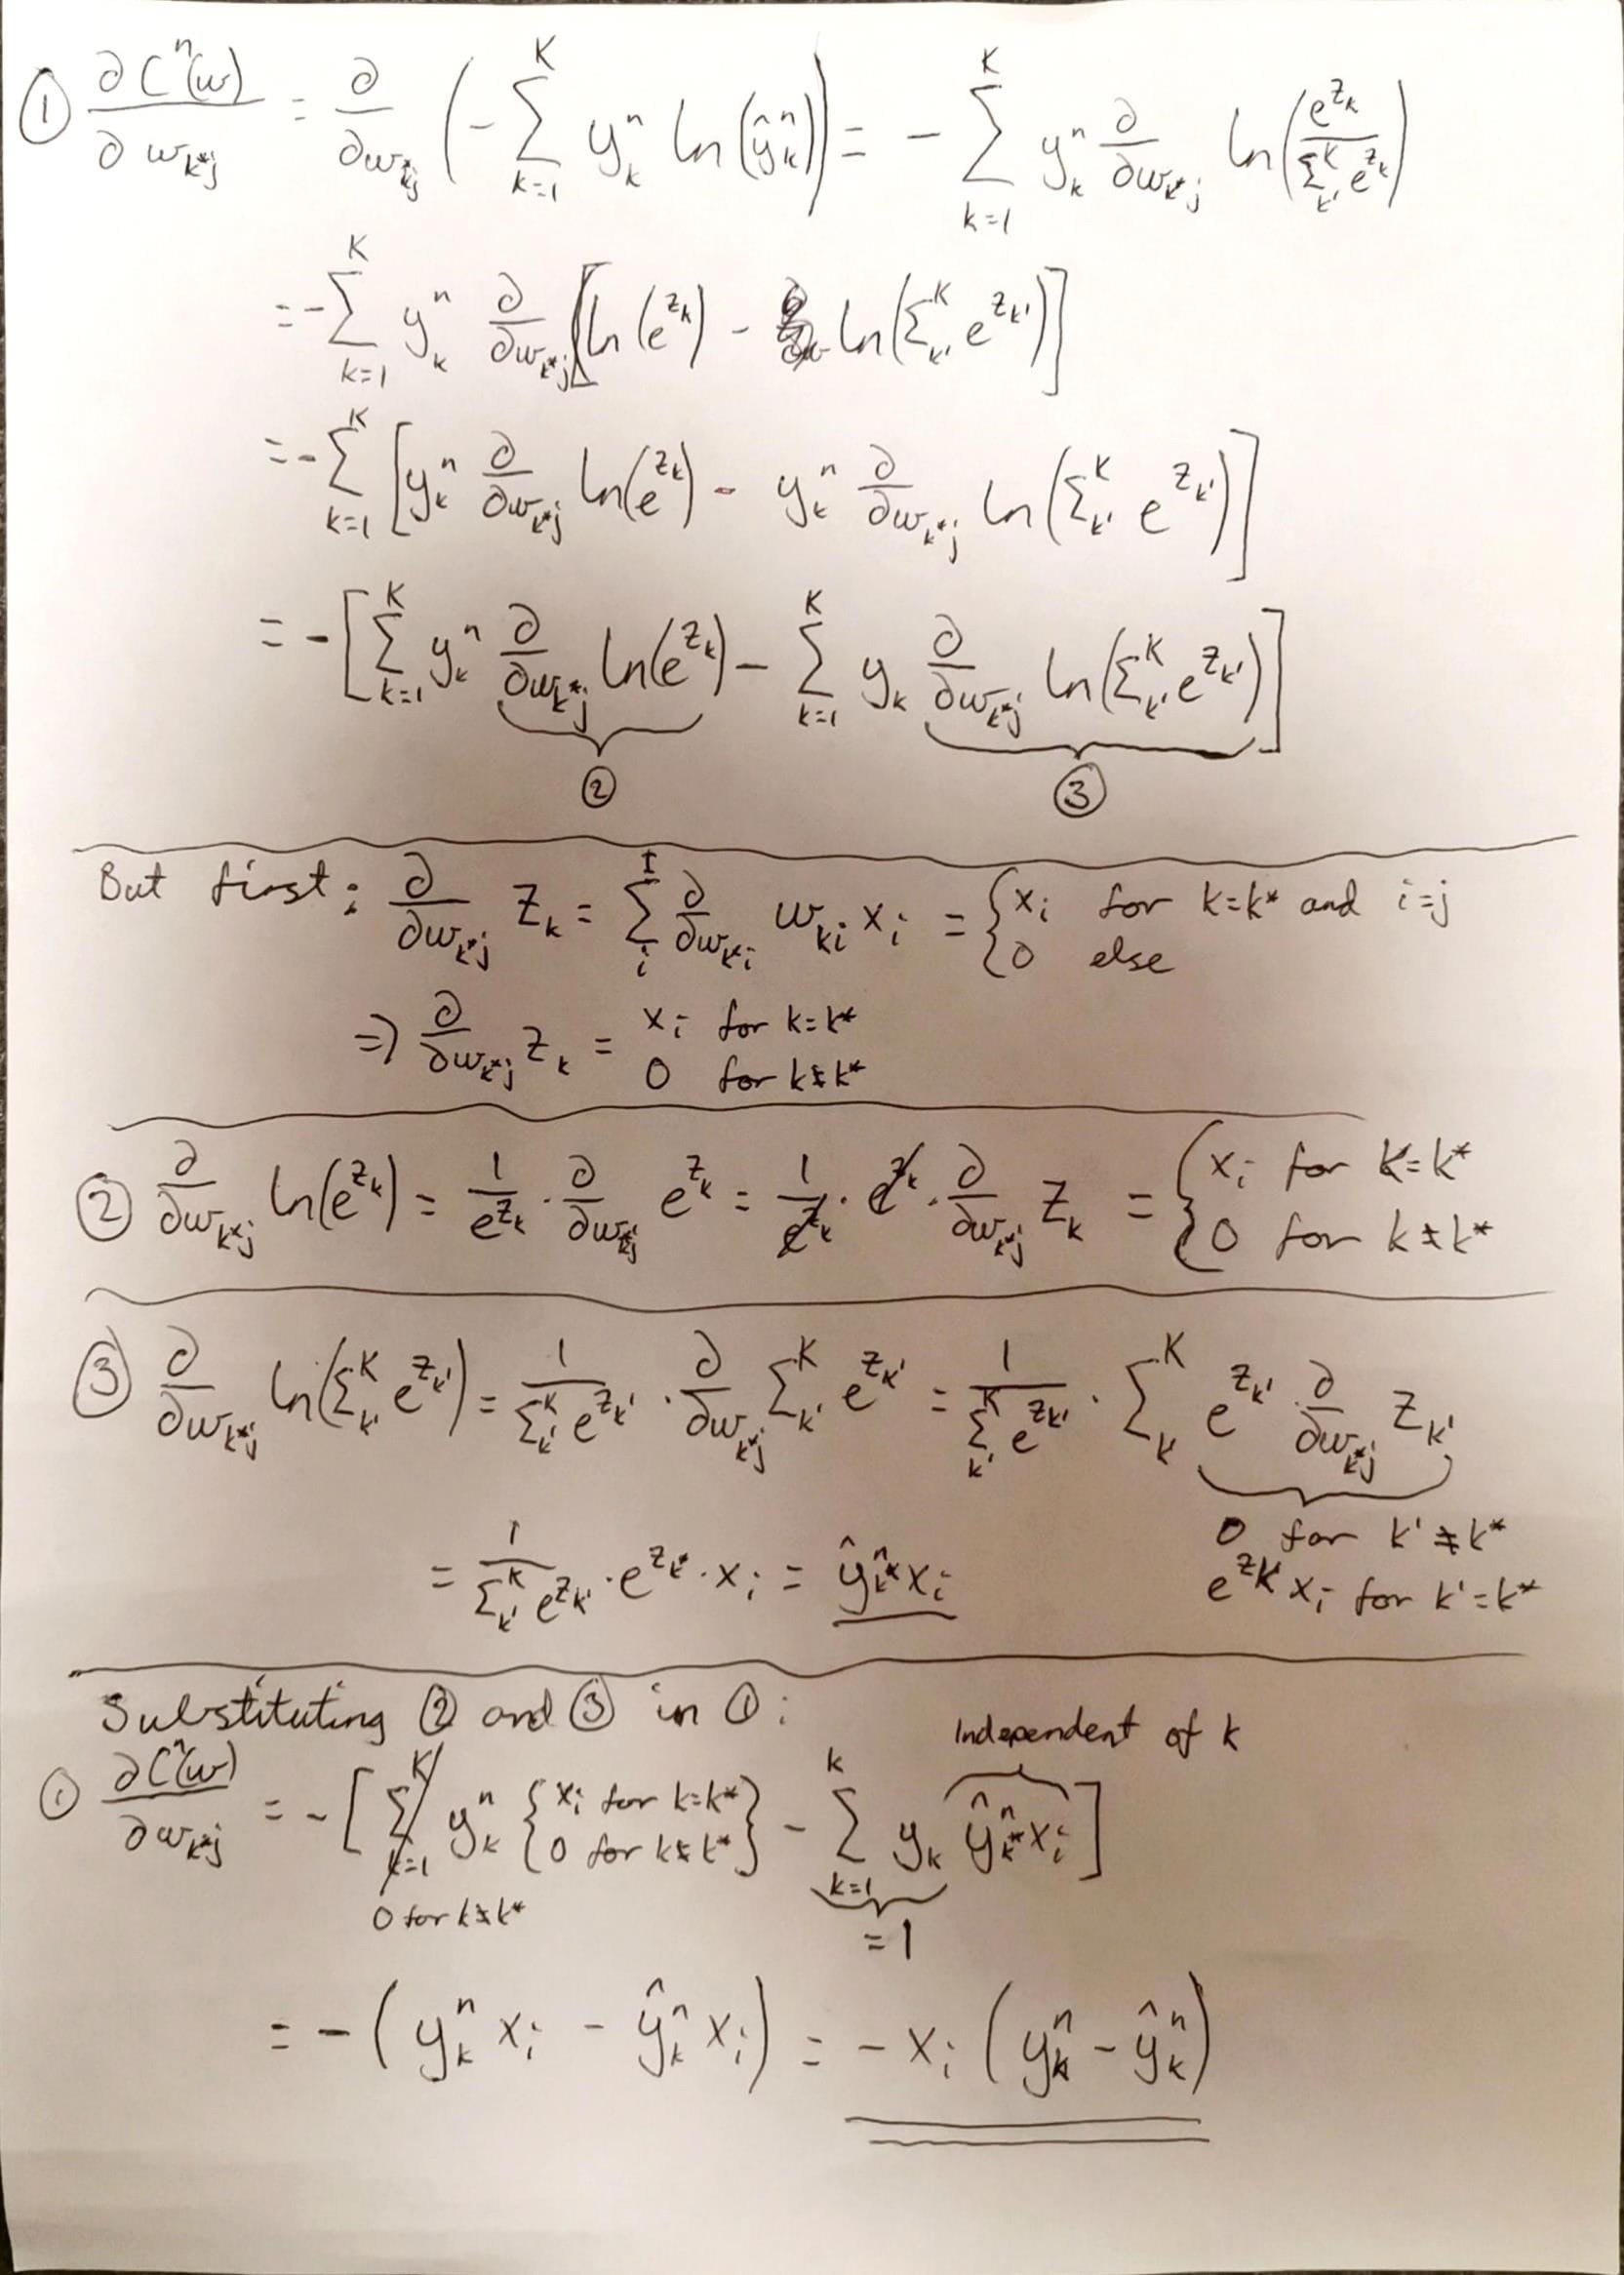 ① ∂Cⁿ(w)/∂w_{k*j} = ∂/∂w_{k*j} (-∑_{k=1}^{K} y_k^n ln(ŷ_k^n)) = -∑_{k=1}^{K} y_k^n ∂/∂w_{k*j} ln(e^{z_k}/∑_{k'}^{K} e^{z_k})
= -∑_{k=1}^{K} y_k^n ∂/∂w_{k*j} [ln(e^{z_k}) - ln(∑_{k'}^{K} e^{z_{k'}})]
= -∑_{k=1}^{K} [y_k^n ∂/∂w_{k*j} ln(e^{z_k}) - y_k^n ∂/∂w_{k*j} ln(∑_{k'}^{K} e^{z_{k'}})]
= -[∑_{k=1}^{K} y_k^n ∂/∂w_{k*j} ln(e^{z_k}) - ∑_{k=1}^{K} y_k ∂/∂w_{k*j} ln(∑_{k'}^{K} e^{z_{k'}})]
② ③
But first: ∂/∂w_{k*j} z_k = ∑_i^I ∂/∂w_{k*i} w_{ki} x_i = { x_i for k=k* and i=j
0 else
=> ∂/∂w_{k*j} z_k = x_i for k=k*
0 for k≠k*
② ∂/∂w_{k*j} ln(e^{z_k}) = 1/e^{z_k} · ∂/∂w_{k*j} e^{z_k} = 1/e^{z_k} · e^{z_k} · ∂/∂w_{k*j} z_k = { x_i for k=k*
0 for k≠k*
③ ∂/∂w_{k*j} ln(∑_{k'}^{K} e^{z_{k'}}) = 1/∑_{k'}^{K} e^{z_{k'}} · ∂/∂w_{k*j} ∑_{k'}^{K} e^{z_{k'}} = 1/∑_{k'}^{K} e^{z_{k'}} · ∑_k^K e^{z_{k'}} · ∂/∂w_{k*j} z_{k'}
0 for k'≠k*
e^{z_{k'}} x_i for k'=k*
= 1/∑_{k'}^{K} e^{z_{k'}} · e^{z_{k*}} · x_i = ŷ_{k*}^n x_i
Substituting ② and ③ in ①:
Independent of k
① ∂Cⁿ(w)/∂w_{k*j} = -[∑_{k=1}^{K} y_k^n {x_i for k=k*
0 for k≠k*} - ∑_{k=1}^{K} y_k ŷ_{k*}^n x_i]
0 for k≠k*
=1
= -(y_k^n x_i - ŷ_k^n x_i) = -x_i (y_k^n - ŷ_k^n)